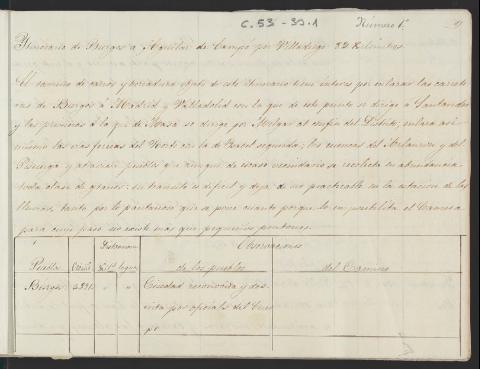 C.53-39.1
Número 1º
Itinerario de Burgos a Aguilar de Campo por Villadiego 82 Kilómetros
El camino de carros y herradura objeto de este Itinerario tiene interes por enlazar las carrete
ras de Burgos á Madrid y Valladolid con la que de este punto se dirige a Santander
y las primeras á la que de se dirige por Melgar al confin del Distrito; enlaza asi
mismo las vias ferreas del Norte con la de segunda; las cuencas del Arlanzon y del
Pisuerga y atraviesa pueblos que aunque de escaso vecindario se recolecta en abundancia
toda clase de granos: su transito es dificil y deja de ser practicable en la estacion de las
lluvias, tanto por lo pantanoso que se pone cuanto porque lo imposibilita el
para cuyo paso no existe más que pequeños pontones.
Distancias
Observaciones
Pueblos
de los pueblos
del Camino
Burgos
Ciudad reconocida y des
crita por oficiales del Cuer
po.